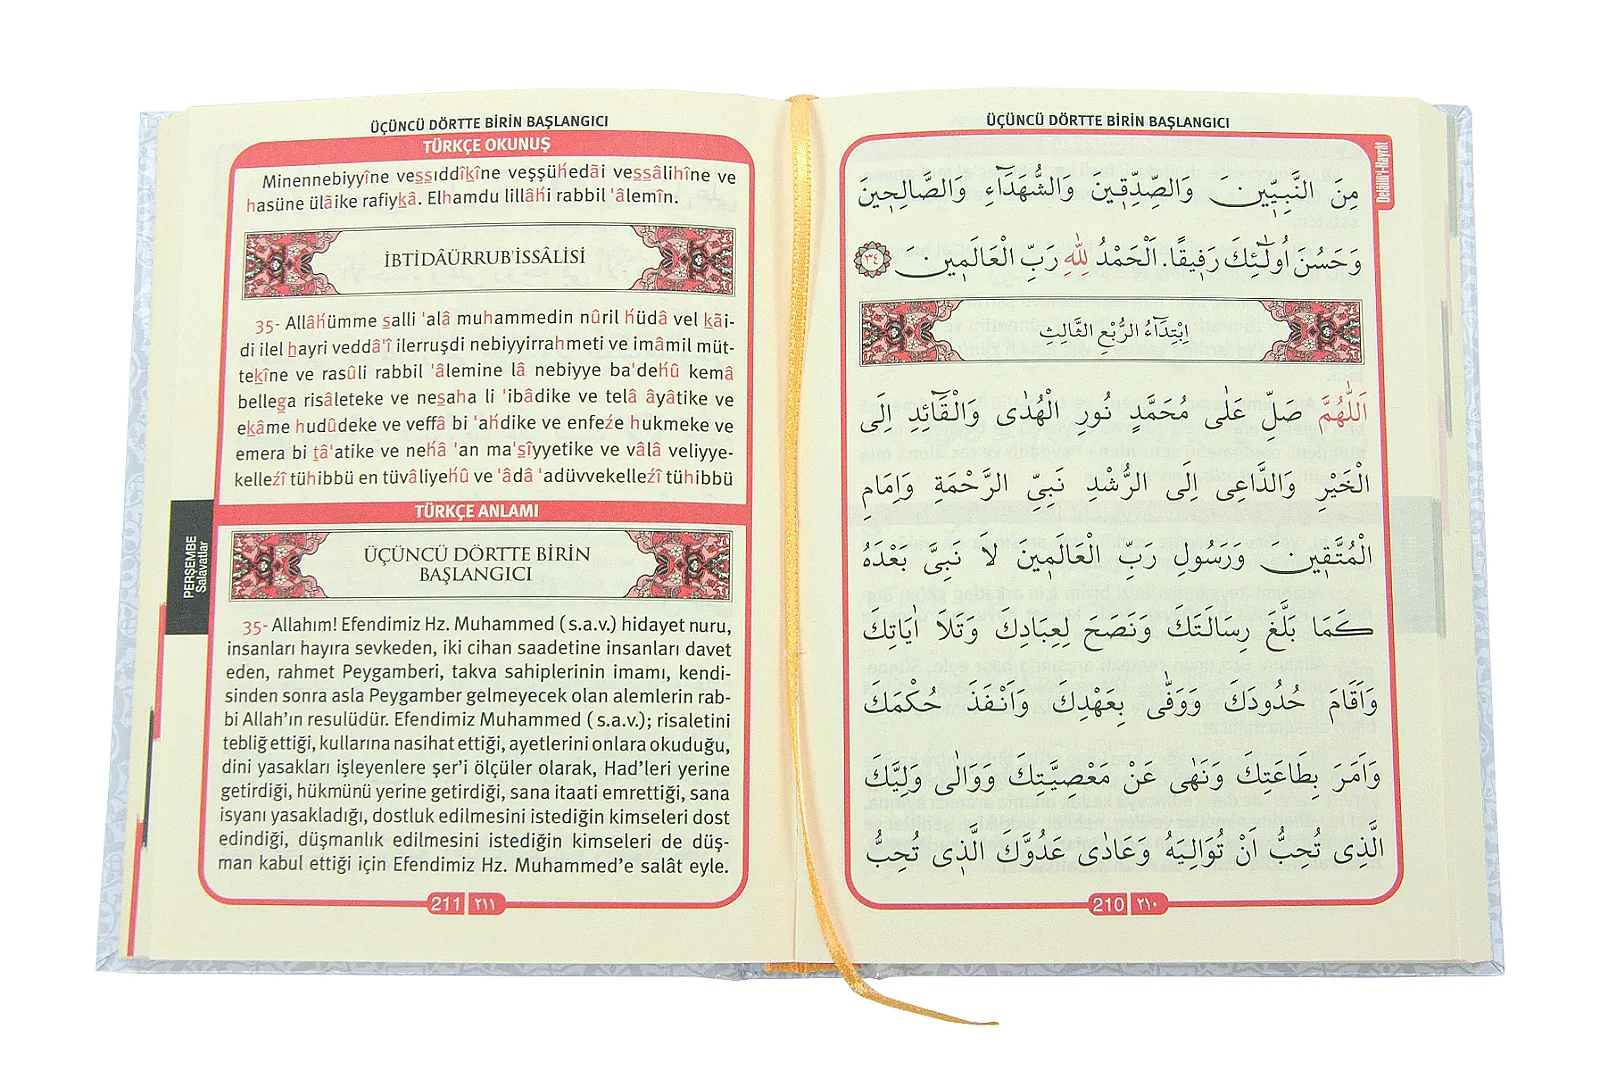 ÜÇÜNCÜ DÖRTTE BİRİN BAŞLANGICI
Delâilü'l-Hayrât
مِنَ النَّبِيّ۪نَ وَالصِّدّ۪يق۪ينَ وَالشُّهَدَٓاءِ وَالصَّالِح۪ينَ
وَحَسُنَ اُولٰٓئِكَ رَف۪يقًا. اَلْحَمْدُ لِلّٰهِ رَبِّ الْعَالَم۪ينَ ٣٤
اِبْتِدَٓاءُ الرُّبْعِ الثَّالِثِ
اَللّٰهُمَّ صَلِّ عَلٰى مُحَمَّدٍ نُورِ الْهُدٰى وَالْقَٓائِدِ اِلَى
الْخَيْرِ وَالدَّاعِى اِلَى الرُّشْدِ نَبِيِّ الرَّحْمَةِ وَاِمَامِ
الْمُتَّق۪ينَ وَرَسُولِ رَبِّ الْعَالَم۪ينَ لَا نَبِىَّ بَعْدَهُ
كَمَا بَلَّغَ رِسَالَتَكَ وَنَصَحَ لِعِبَادِكَ وَتَلَا اٰيَاتِكَ
وَاَقَامَ حُدُودَكَ وَوَفّٰى بِعَهْدِكَ وَاَنْفَذَ حُكْمَكَ
وَاَمَرَ بِطَاعَتِكَ وَنَهٰى عَنْ مَعْصِيَتِكَ وَوَالٰى وَلِيَّكَ
الَّذ۪ى تُحِبُّ اَنْ تُوَالِيَهُ وَعَادٰى عَدُوَّكَ الَّذ۪ى تُحِبُّ
210 ٢١٠
ÜÇÜNCÜ DÖRTTE BİRİN BAŞLANGICI
TÜRKÇE OKUNUŞ
Minennebiyyîne vessıddîkîne veşşüḣedãi vessâlihîne ve
hasüne ülãike rafiykâ. Elhamdu lillâḣi rabbil 'âlemîn.
İBTİDÂÜRRUB'İSSÂLİSİ
35- Allâḣümme salli 'alâ muhammedin nûril ḣüdâ vel kãi-
di ilel hayri veddâ'î ilerruşdi nebiyyirrahmeti ve imâmil müt-
tekîne ve rasûli rabbil 'âlemine lâ nebiyye ba'deḣû kemâ
bellega risâleteke ve nesaha li 'ibâdike ve telâ âyâtike ve
ekâme hudûdeke ve veffâ bi 'aḣdike ve enfeźe hukmeke ve
emera bi tâ'atike ve neḣâ 'an ma'sîyyetike ve vâlâ veliyye-
kelleźî tühibbü en tüvâliyeḣû ve 'âdâ 'adüvvekelleźî tühibbü
TÜRKÇE ANLAMI
ÜÇÜNCÜ DÖRTTE BİRİN
BAŞLANGICI
PERŞEMBE
Salavatlar
35- Allahım! Efendimiz Hz. Muhammed (s.a.v.) hidayet nuru,
insanları hayıra sevkeden, iki cihan saadetine insanları davet
eden, rahmet Peygamberi, takva sahiplerinin imamı, kendi-
sinden sonra asla Peygamber gelmeyecek olan alemlerin rab-
bi Allah'ın resulüdür. Efendimiz Muhammed (s.a.v.); risaletini
tebliğ ettiği, kullarına nasihat ettiği, ayetlerini onlara okuduğu,
dini yasakları işleyenlere şer'i ölçüler olarak, Had'leri yerine
getirdiği, hükmünü yerine getirdiği, sana itaati emrettiği, sana
isyanı yasakladığı, dostluk edilmesini istediğin kimseleri dost
edindiği, düşmanlık edilmesini istediğin kimseleri de düş-
man kabul ettiği için Efendimiz Hz. Muhammed'e salât eyle.
211 ٢١١